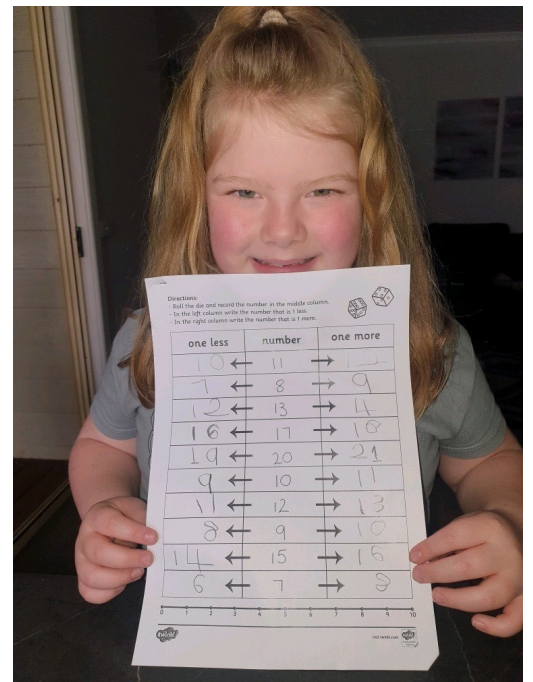 Directions:
- Roll the die and record the number in the middle column.
- In the left column write the number that is 1 less.
- In the right column write the number that is 1 more.
one less number one more
10 ← 11 → 12
7 ← 8 → 9
12 ← 13 → 4
16 ← 17 → 18
19 ← 20 → 21
9 ← 10 → 11
11 ← 12 → 13
8 ← 9 → 10
14 ← 15 → 16
6 ← 7 → 8
0 1 2 3 4 5 6 7 8 9 10
twinkl
visit twinkl.com